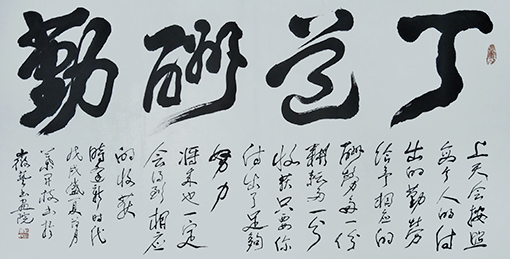 天道酬勤
上天会按照
每个人的付
出的勤劳
给予相应的
酬劳多一份
耕耘多一分
收获只要你
付出了足够
努力
将来也一定
会得到相应
的收获
时逢新时代
戊戌盛夏月
书画院